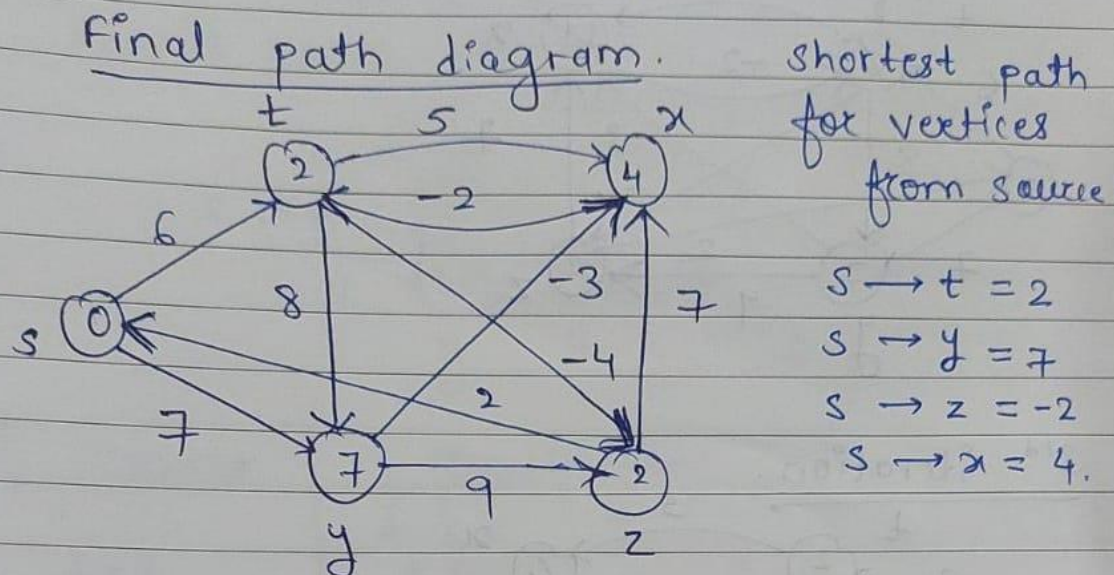 Final path diagram.
shortest path
for vertices
from source
t
5
x
2
4
-2
6
8
-3
7
s
0
-4
2
7
7
9
2
y
z
s → t = 2
s → y = 7
s → z = -2
s → x = 4.